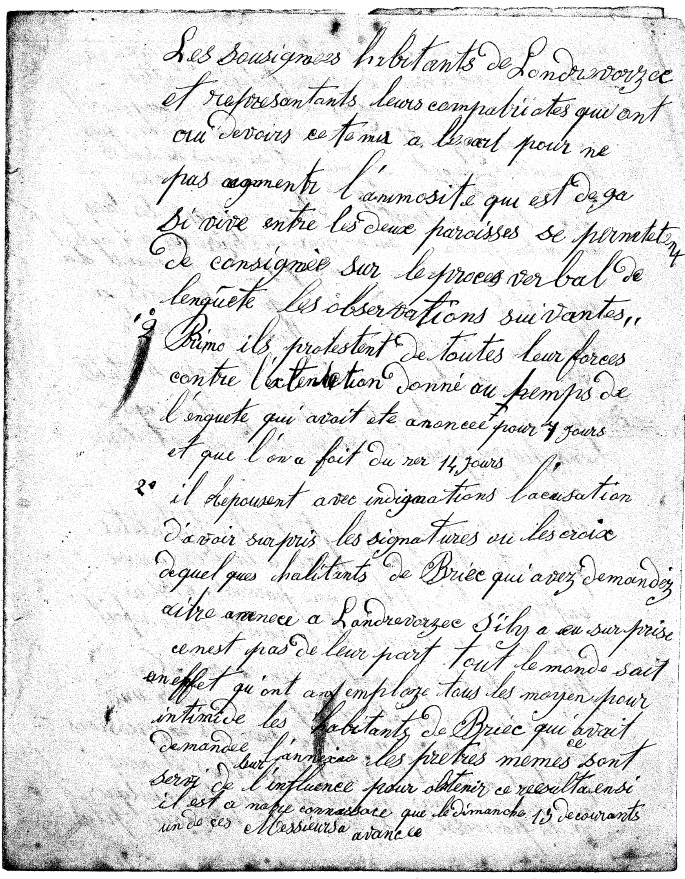 Les sousignees habitants de Landrevorzec
et represantants leurs compatriotes qui ont
cru devoirs ce tenir a lecart pour ne
pas augmentr l'animosite qui est de ga
si vive entre les deux paroisses se permetent
de consignée sur le proces verbal de
lenguete les observations suivantes,,
1º Primo ils protestent de toutes leur forces
contre l'extention donné au temps de
l'enguete qui avait ete anoncee pour 7 jours
et que l'on a fait durer 14 jours
2º il repousent avec indignations l'acusation
d'avoir surpris les signatures ou les croix
aquel ques habitants de Briec qui avez demandez
aitre annece a Landrevorzec S'il y a eu surprise
ce nest pas de leur part tout le monde sait
en effet qu'ont an employe tous les moyen pour
intimide les habitants de Briec qui avait
demandee l'annexion les pretres memes ce sont
servi de l'influence pour obtenir ce resulta ensi
il est a notre connassace que le dimanche 13 de courants
un de ces Messieurs a avancee